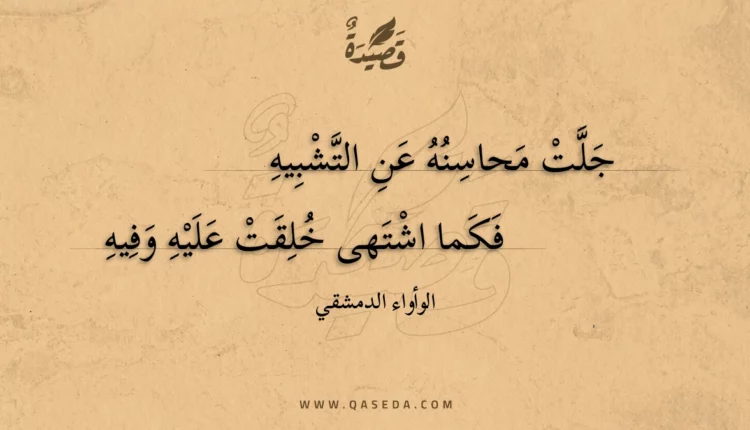 قَصِيدَةٌ
جَلَّتْ مَحاسِنُهُ عَنِ التَّشْبِيهِ
فَكَما اشْتَهى خُلِقَتْ عَلَيْهِ وَفِيهِ
الوأواء الدمشقي
WWW.QASEDA.COM